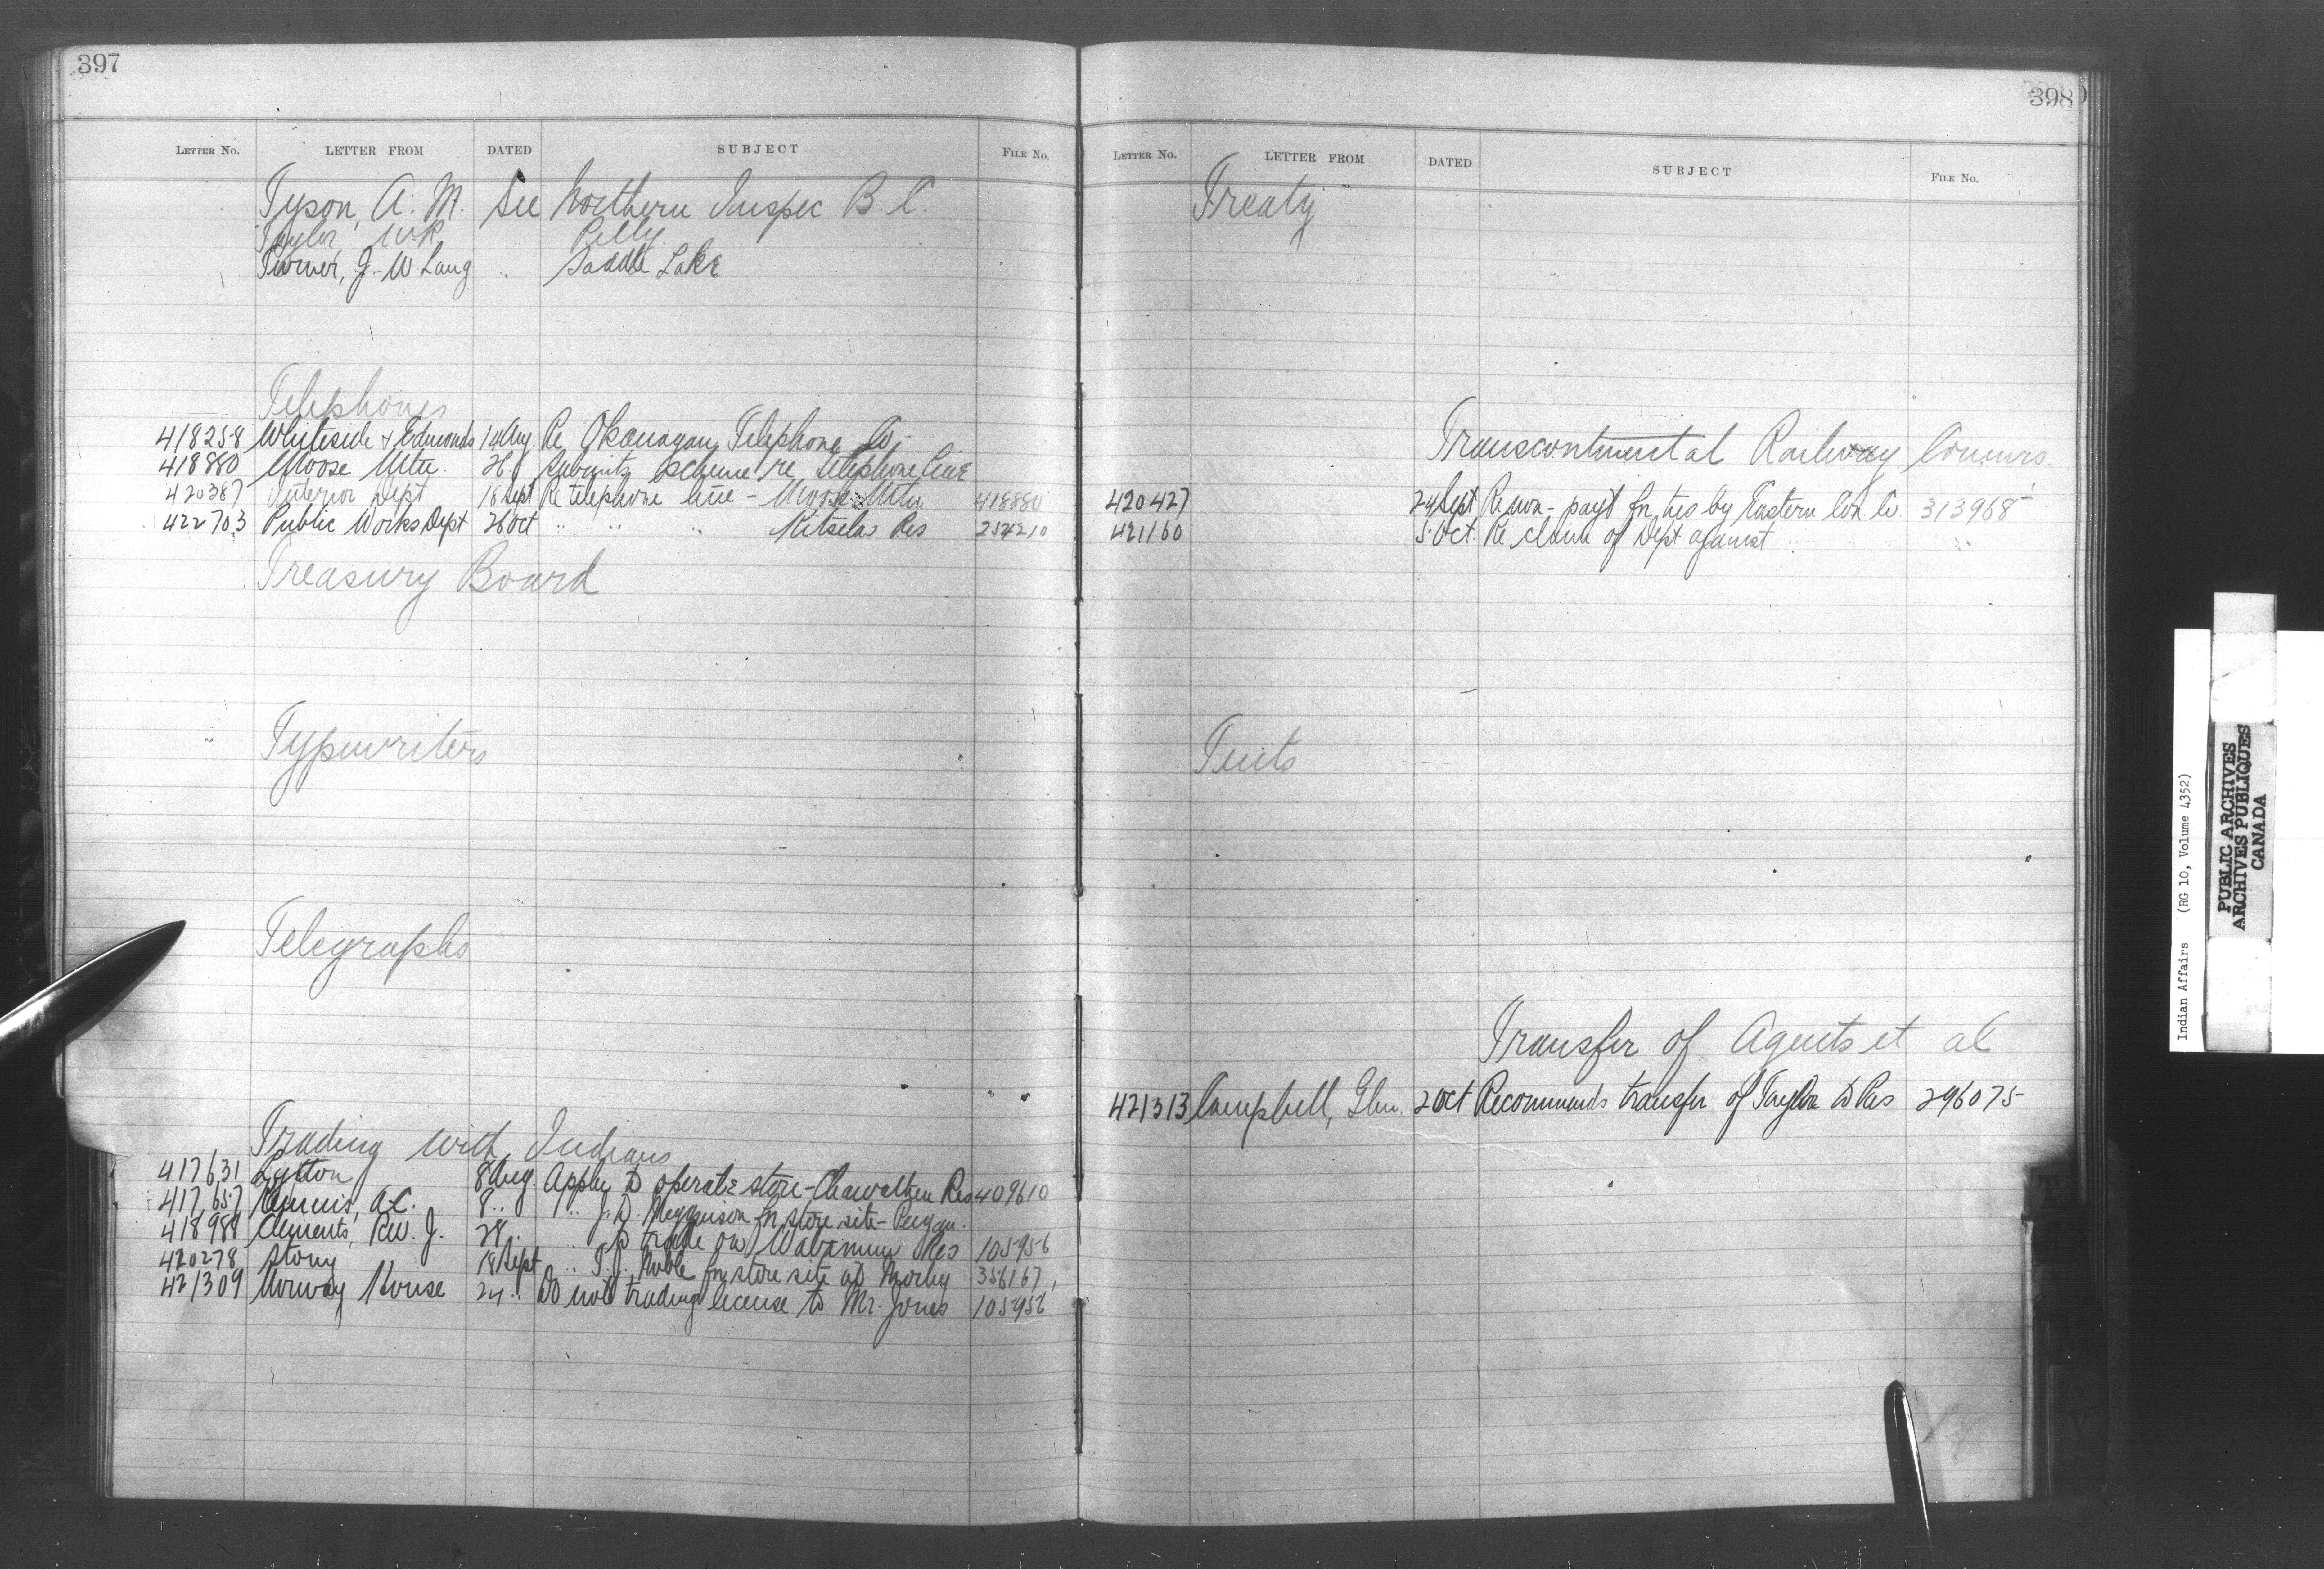 397
LETTER NO. LETTER FROM DATED SUBJECT FILE No.
Tyson, A. M. See Northern Inspec B. C.
Taylor, W R Pelly
Turner, J. W Lang " Saddle Lake
Telephones
418258 Whiteside & Edmonds 14 Aug. Re Okanagan Telephone Co.
418880 Moose Mtn. 26 " Submits scheme re telephone line
420387 Interior Dept 18 Sept Re telephone line - Moose Mtn 418880
422703 Public Works Dept 26 Oct " " " Kitselas Res 254210
Treasury Board
Typewriters
Telegraphs
Trading with Indians
417631 Lytton 8 Aug. Appln to operate store - Res 409610
417657 A.C. 8 " " J. D. for store site - Peigan.
418988 Clements, Rev. J. 28 " " to trade on Wabamun Res 105956
420278 Stony 18 Sept " T. J. Noble for store site at Morley 356167
421309 Norway House 24 " Do not trading license to Mr. Jones 105956
398
LETTER NO. LETTER FROM DATED SUBJECT FILE No.
Treaty
Transcontinental Railway Commrs.
420427 24 Sept Re non-payt for ties by Eastern Con. Co. 313968
421160 5 Oct. Re claim of Dept against "
Tents
Transfer of Agents et al
421313 Campbell, Glen. 2 Oct Recommends transfer of Taylor to Pas 296075
Indian Affairs (RG 10, Volume 4352)
PUBLIC ARCHIVES
ARCHIVES PUBLIQUES
CANADA